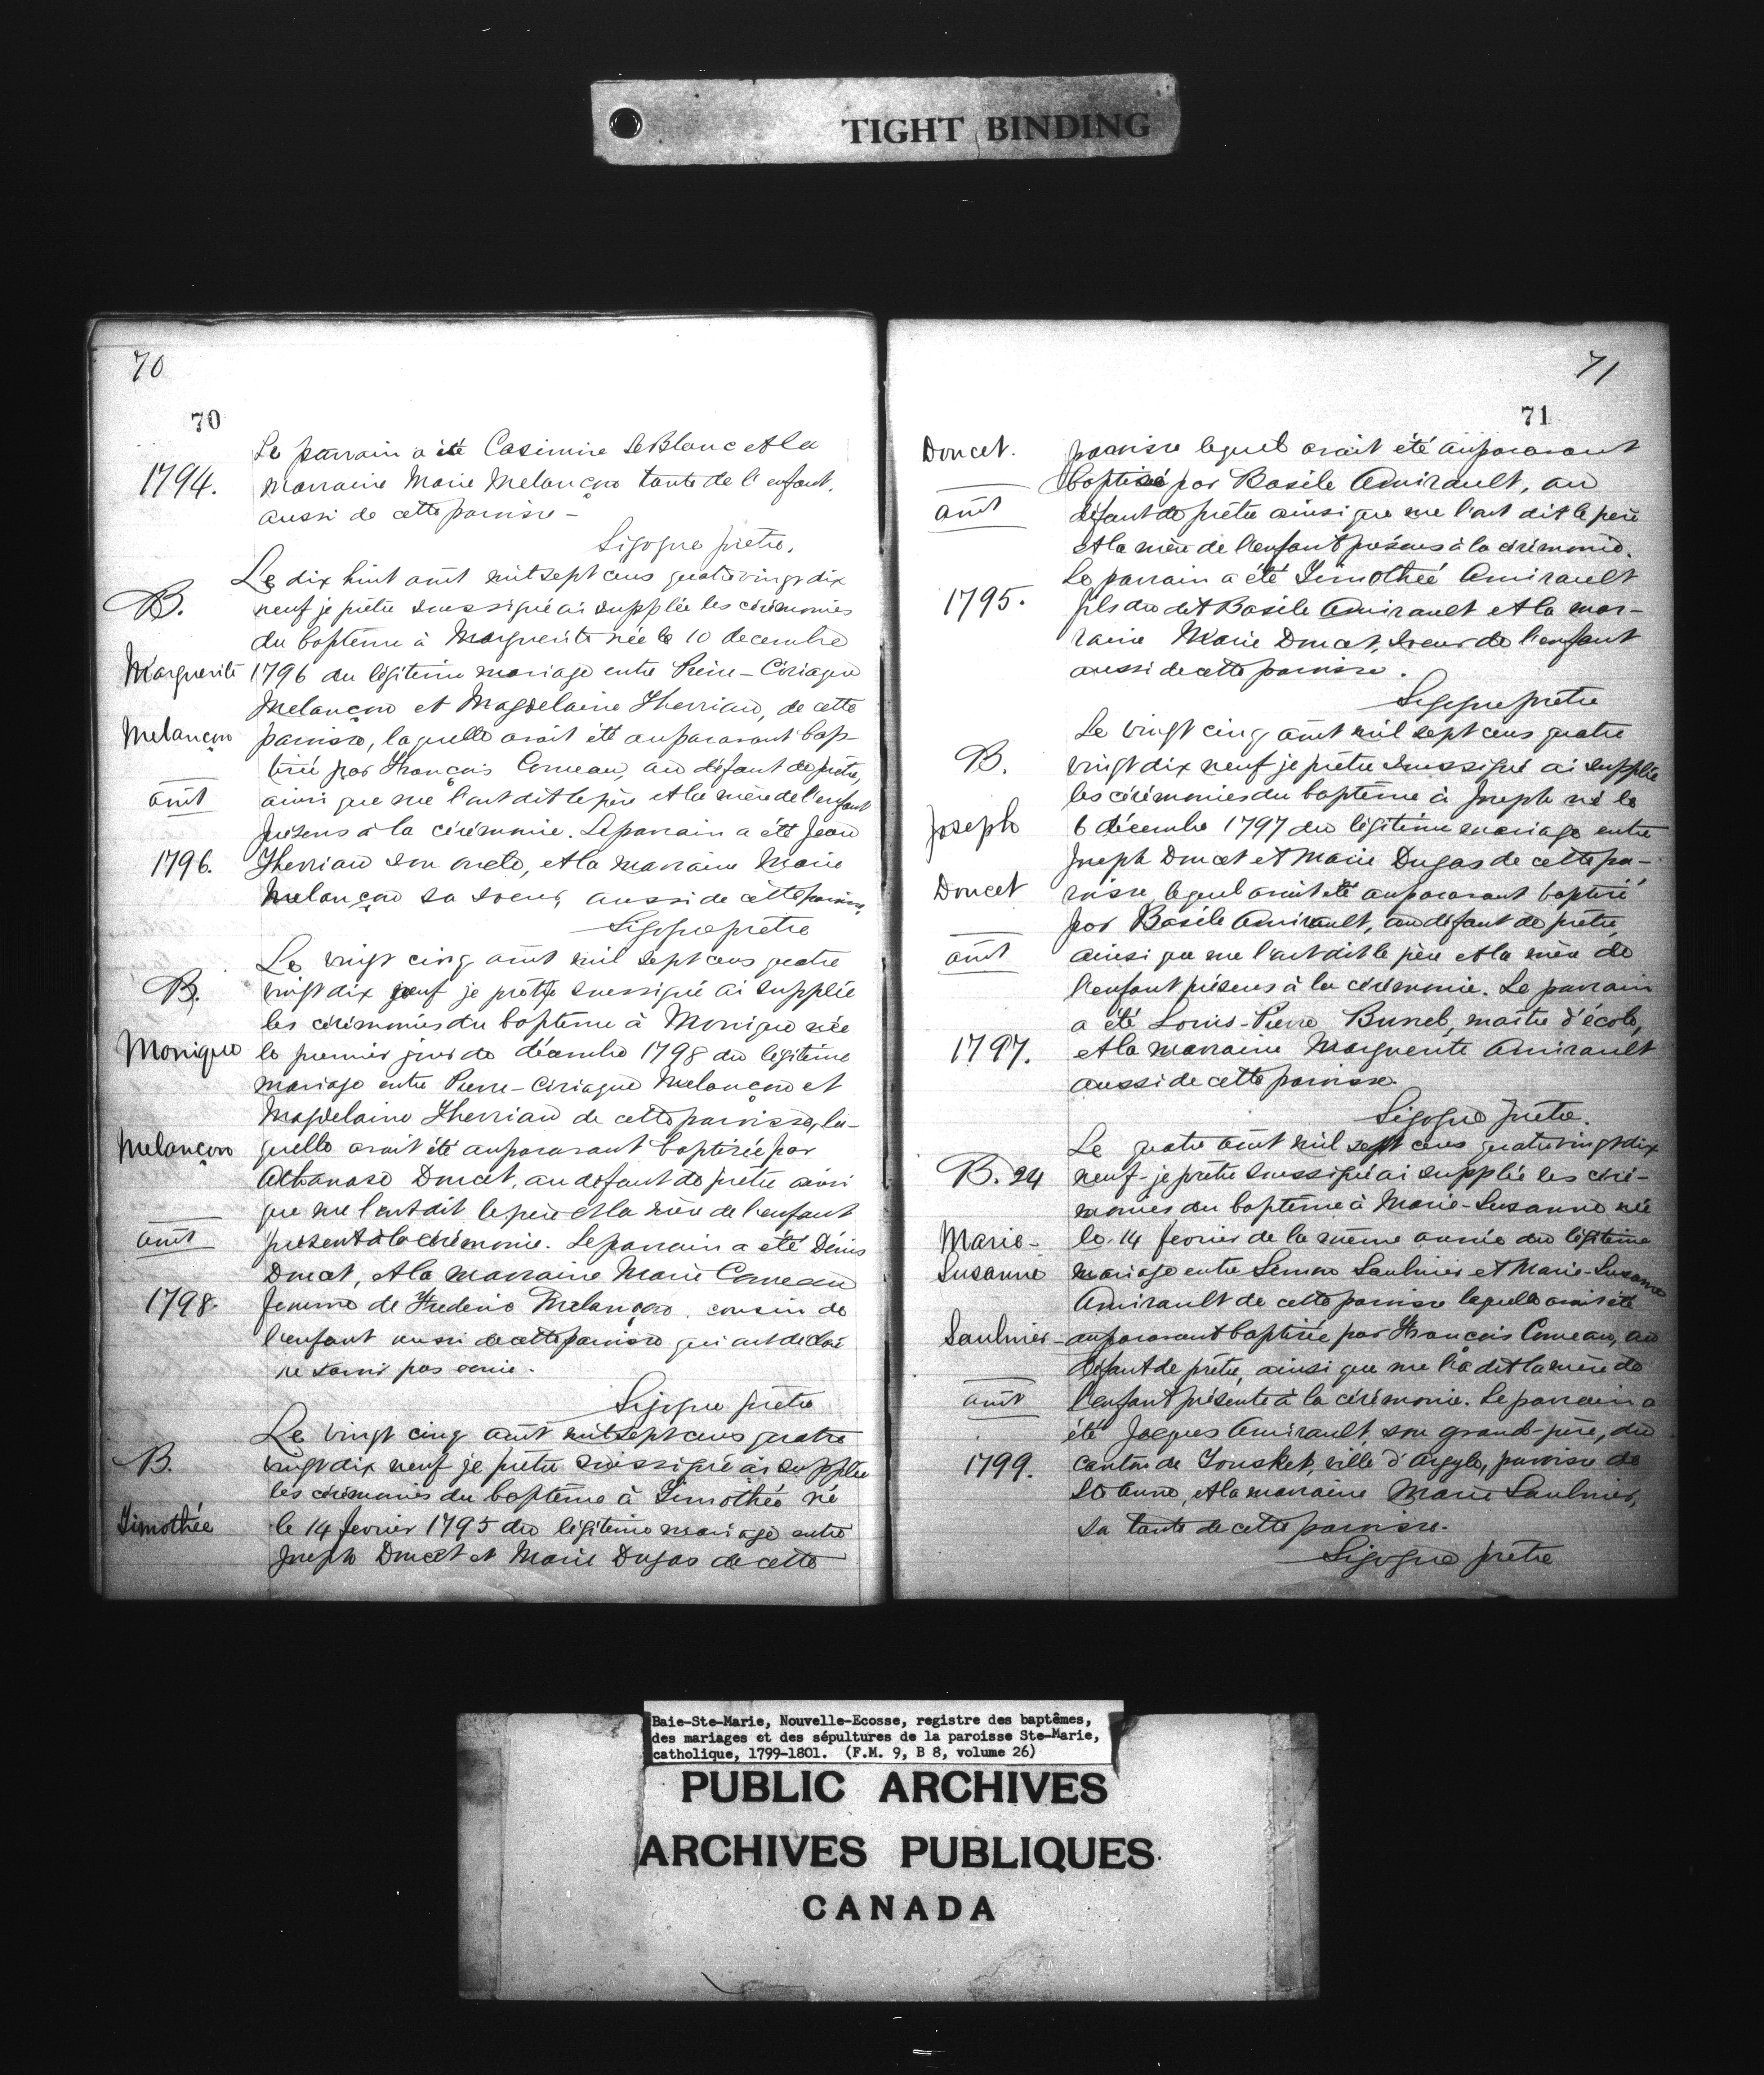 TIGHT BINDING
70
70
Le parrain a été Casimire LeBlanc et la
1794.
marraine Marie Melançon tante de l'enfant,
aussi de cette paroisse -
Sigogne prêtre.
Le dix huit août mil sept cens quatrevingt dix
B.
neuf je prêtre soussigné ai supplée les cérémonies
du baptême à Marguerite née le 10 decembre
Marguerite
1796 du légitime mariage entre Pierre-Ciriaque
Melançon et Magdelaine Therriau, de cette
Melançon
paroisse, laquelle avait été auparavant bap-
tisée par François Comeau, au défaut de prêtre,
août
ainsi que me l'ont dit le père et la mère de l'enfant
présens à la cérémonie. Le parrain a été Jean
1796.
Therriau son oncle, et la marraine Marie
Melançon sa soeur, aussi de cette paroisse.
Sigogne prêtre
Le vingt cinq août mil sept cens quatre
B.
vingt dix neuf je prêtre soussigné ai supplée
les cérémonies du baptême à Monique née
Monique
le premier jour de décembre 1798 du légitime
mariage entre Pierre-Ciriaque Melançon et
Magdelaine Therriau de cette paroisse, la-
Melançon
quelle avait été auparavant baptisée par
Athanase Doucet, au défaut de prêtre ainsi
que me l'ont dit le père et la mère de l'enfant
août
présent à la cérémonie. Le parrain a été Dénis
Doucet, et la marraine Marie Comeau
1798.
femme de Frederic Melançon, cousin de
l'enfant aussi de cette paroisse qui ont déclaré
ne savoir pas écrire.
Sigogne prêtre
Le vingt cinq août mil sept cens quatre
B.
vingt dix neuf je prêtre soussigné ai supplée
les cérémonies du baptême à Timothée né
Timothée
le 14 fevrier 1795 du légitime mariage entre
Joseph Doucet et Marie Dugas de cette
71
71
Doucet.
paroisse lequel avait été auparavant
baptisé par Basile Amirault, au
août
défaut de prêtre ainsi que me l'ont dit le père
et la mère de l'enfant présens à la cérémonie.
Le parrain a été Timothée Amirault
1795.
fils du dit Basile Amirault et la mar-
raine Marie Doucet, soeur de l'enfant
aussi de cette paroisse.
Sigogne prêtre
Le vingt cinq août mil sept cens quatre
B.
vingt dix neuf je prêtre soussigné ai supplée
les cérémonies du baptême à Joseph né le
Joseph
6 décembre 1797 du légitime mariage entre
Joseph Doucet et Marie Dugas de cette pa-
Doucet
roisse, lequel avait été auparavant baptisé
par Basile Amirault, au défaut de prêtre
août
ainsi que me l'ont dit le père et la mère de
l'enfant présens à la cérémonie. Le parrain
a été Louis-Pierre Brunet, maître d'école,
1797.
et la marraine Marguerite Amirault
aussi de cette paroisse.
Sigogne prêtre.
Le quatre août mil sept cens quatrevingt dix
B. 24
neuf je prêtre soussigné ai supplée les céré-
monies du baptême à Marie-Susanne née
Marie-
le 14 fevrier de la même année du légitime
Susanne
mariage entre Simon Saulnier et Marie-Susanne
Amirault de cette paroisse laquelle avait été
Saulnier
auparavant baptisée par François Comeau, au
défaut de prêtre, ainsi que me l'a dit la mère de
août
l'enfant présente à la cérémonie. Le parrain a
été Jacques Amirault son grand-père, du
1799.
canton de Tousket, ville d'Argyle, paroisse de
Ste Anne, et la marraine Marie Saulnier,
sa tante de cette paroisse.
Sigogne prêtre
Baie-Ste-Marie, Nouvelle-Ecosse, registre des baptêmes,
des mariages et des sépultures de la paroisse Ste-Marie,
catholique, 1799-1801. (F.M. 9, B 8, volume 26)
PUBLIC ARCHIVES
ARCHIVES PUBLIQUES
CANADA